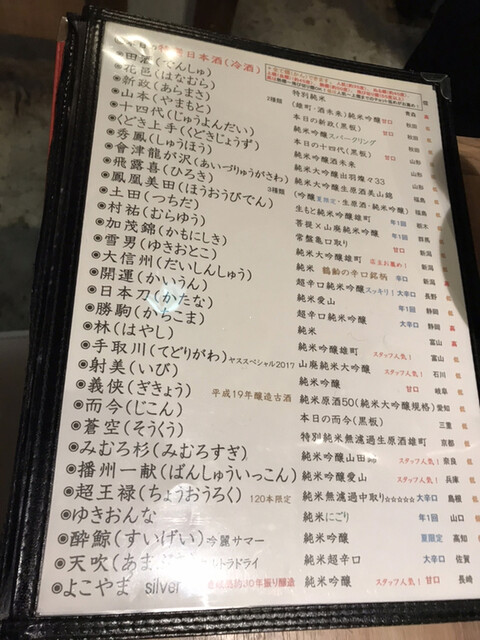 日本酒(冷酒)
◉田酒(でんしゅ) 特別純米 青森
◉花邑(はなむら) 3種類 (雄町・酒未来)純米吟醸 甘口 秋田
◉新政(あらまさ) 本日の新政(黒板) 秋田
◉山本(やまもと) 純米吟醸スパークリング 秋田
◉十四代(じゅうよんだい) 本日の十四代(黒板) 甘口 山形
◉くどき上手(くどきじょうず) 純米吟醸酒未来 山形
◉秀鳳(しゅうほう) 純米大吟醸出羽燦々33 山形
◉會津龍が沢(あいづりゅうがさわ) 純米大吟醸生原酒美山錦 福島
◉飛露喜(ひろき) 3種類 (吟醸 夏限定・生原酒・純米吟醸) 福島
◉鳳凰美田(ほうおうびでん) 生もと純米吟醸雄町 年1回 栃木
◉土田(つちだ) 菩提×山廃純米吟醸 群馬
◉村祐(むらゆう) 常盤亀口取り 甘口 新潟
◉加茂錦(かもにしき) 純米大吟醸雄町 店主お薦め! 新潟
◉雪男(ゆきおとこ) 純米 鶴齢の辛口銘柄 辛口 新潟
◉大信州(だいしんしゅう) 超辛口純米吟醸スッキリ! 大辛口 長野
◉開運(かいうん) 純米愛山 年1回 静岡
◉日本刀(かたな) 超辛口純米吟醸 大辛口 静岡
◉勝駒(かちこま) 純米 富山
◉林(はやし) 純米吟醸雄町 スタッフ人気! 富山
◉手取川(てどりがわ)ヤススペシャル2017 山廃純米大吟醸 石川
◉射美(いび) 純米吟醸 甘口 岐阜
◉義侠(ぎきょう) 平成19年醸造古酒 純米原酒50(純米大吟醸規格) 愛知
◉而今(じこん) 本日の而今(黒板) 三重
◉蒼空(そうくう) 特別純米無濾過生原酒雄町 京都
◉みむろ杉(みむろすぎ) 純米吟醸山田錦 スタッフ人気! 奈良
◉播州一献(ばんしゅういっこん) 純米吟醸愛山 スタッフ人気! 兵庫
◉超王禄(ちょうおうろく) 120本限定 純米無濾過中取り☆☆☆☆☆ 大辛口 島根
◉ゆきおんな 純米にごり 年1回 山口
◉酔鯨(すいげい)吟麗サマー 純米吟醸 夏限定 高知
◉天吹(あまぶき)ウルトラドライ 純米超辛口 大辛口 佐賀
◉よこやま silver 純米吟醸 スタッフ人気! 甘口 長崎